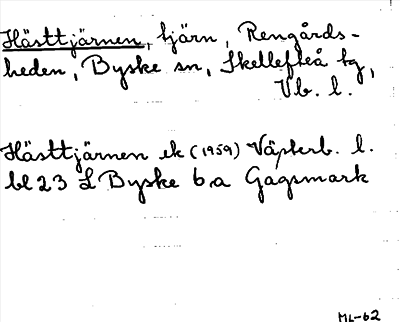 Hästtjärnen, tjärn, Rengårds-
heden, Byske sn, Skellefteå tg,
Vb. l.
Hästtjärnen ek (1959) Västerb. l.
bl 23 L Byske 6,a Gagsmark
ML-62